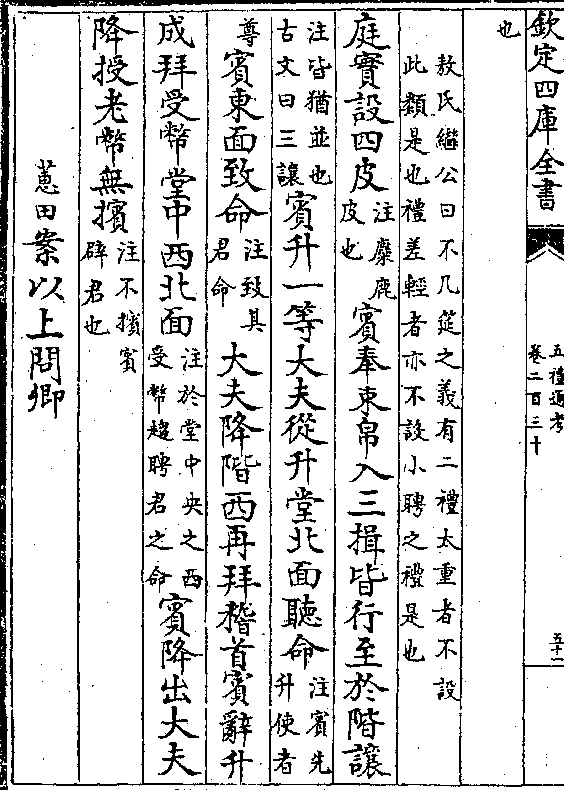 欽定四庫全書
五禮通考
卷二百三十
五十一
也
敖氏繼公曰不几筵之義有二禮太重者不設
此類是也禮差輕者亦不設小聘之禮是也
庭實設四皮注麋鹿皮也賓奉束帛入三揖皆行至於階讓
注皆猶並也古文曰三讓賓升一等大夫從升堂北面聽命注賓先升使者
尊賓東面致命注致其君命大夫降階西再拜稽首賓辭升
成拜受幣堂中西北面注於堂中央之西受幣趨聘君之命賓降出大夫
降授老幣無擯注不擯賓辟君也
蕙田案以上問卿